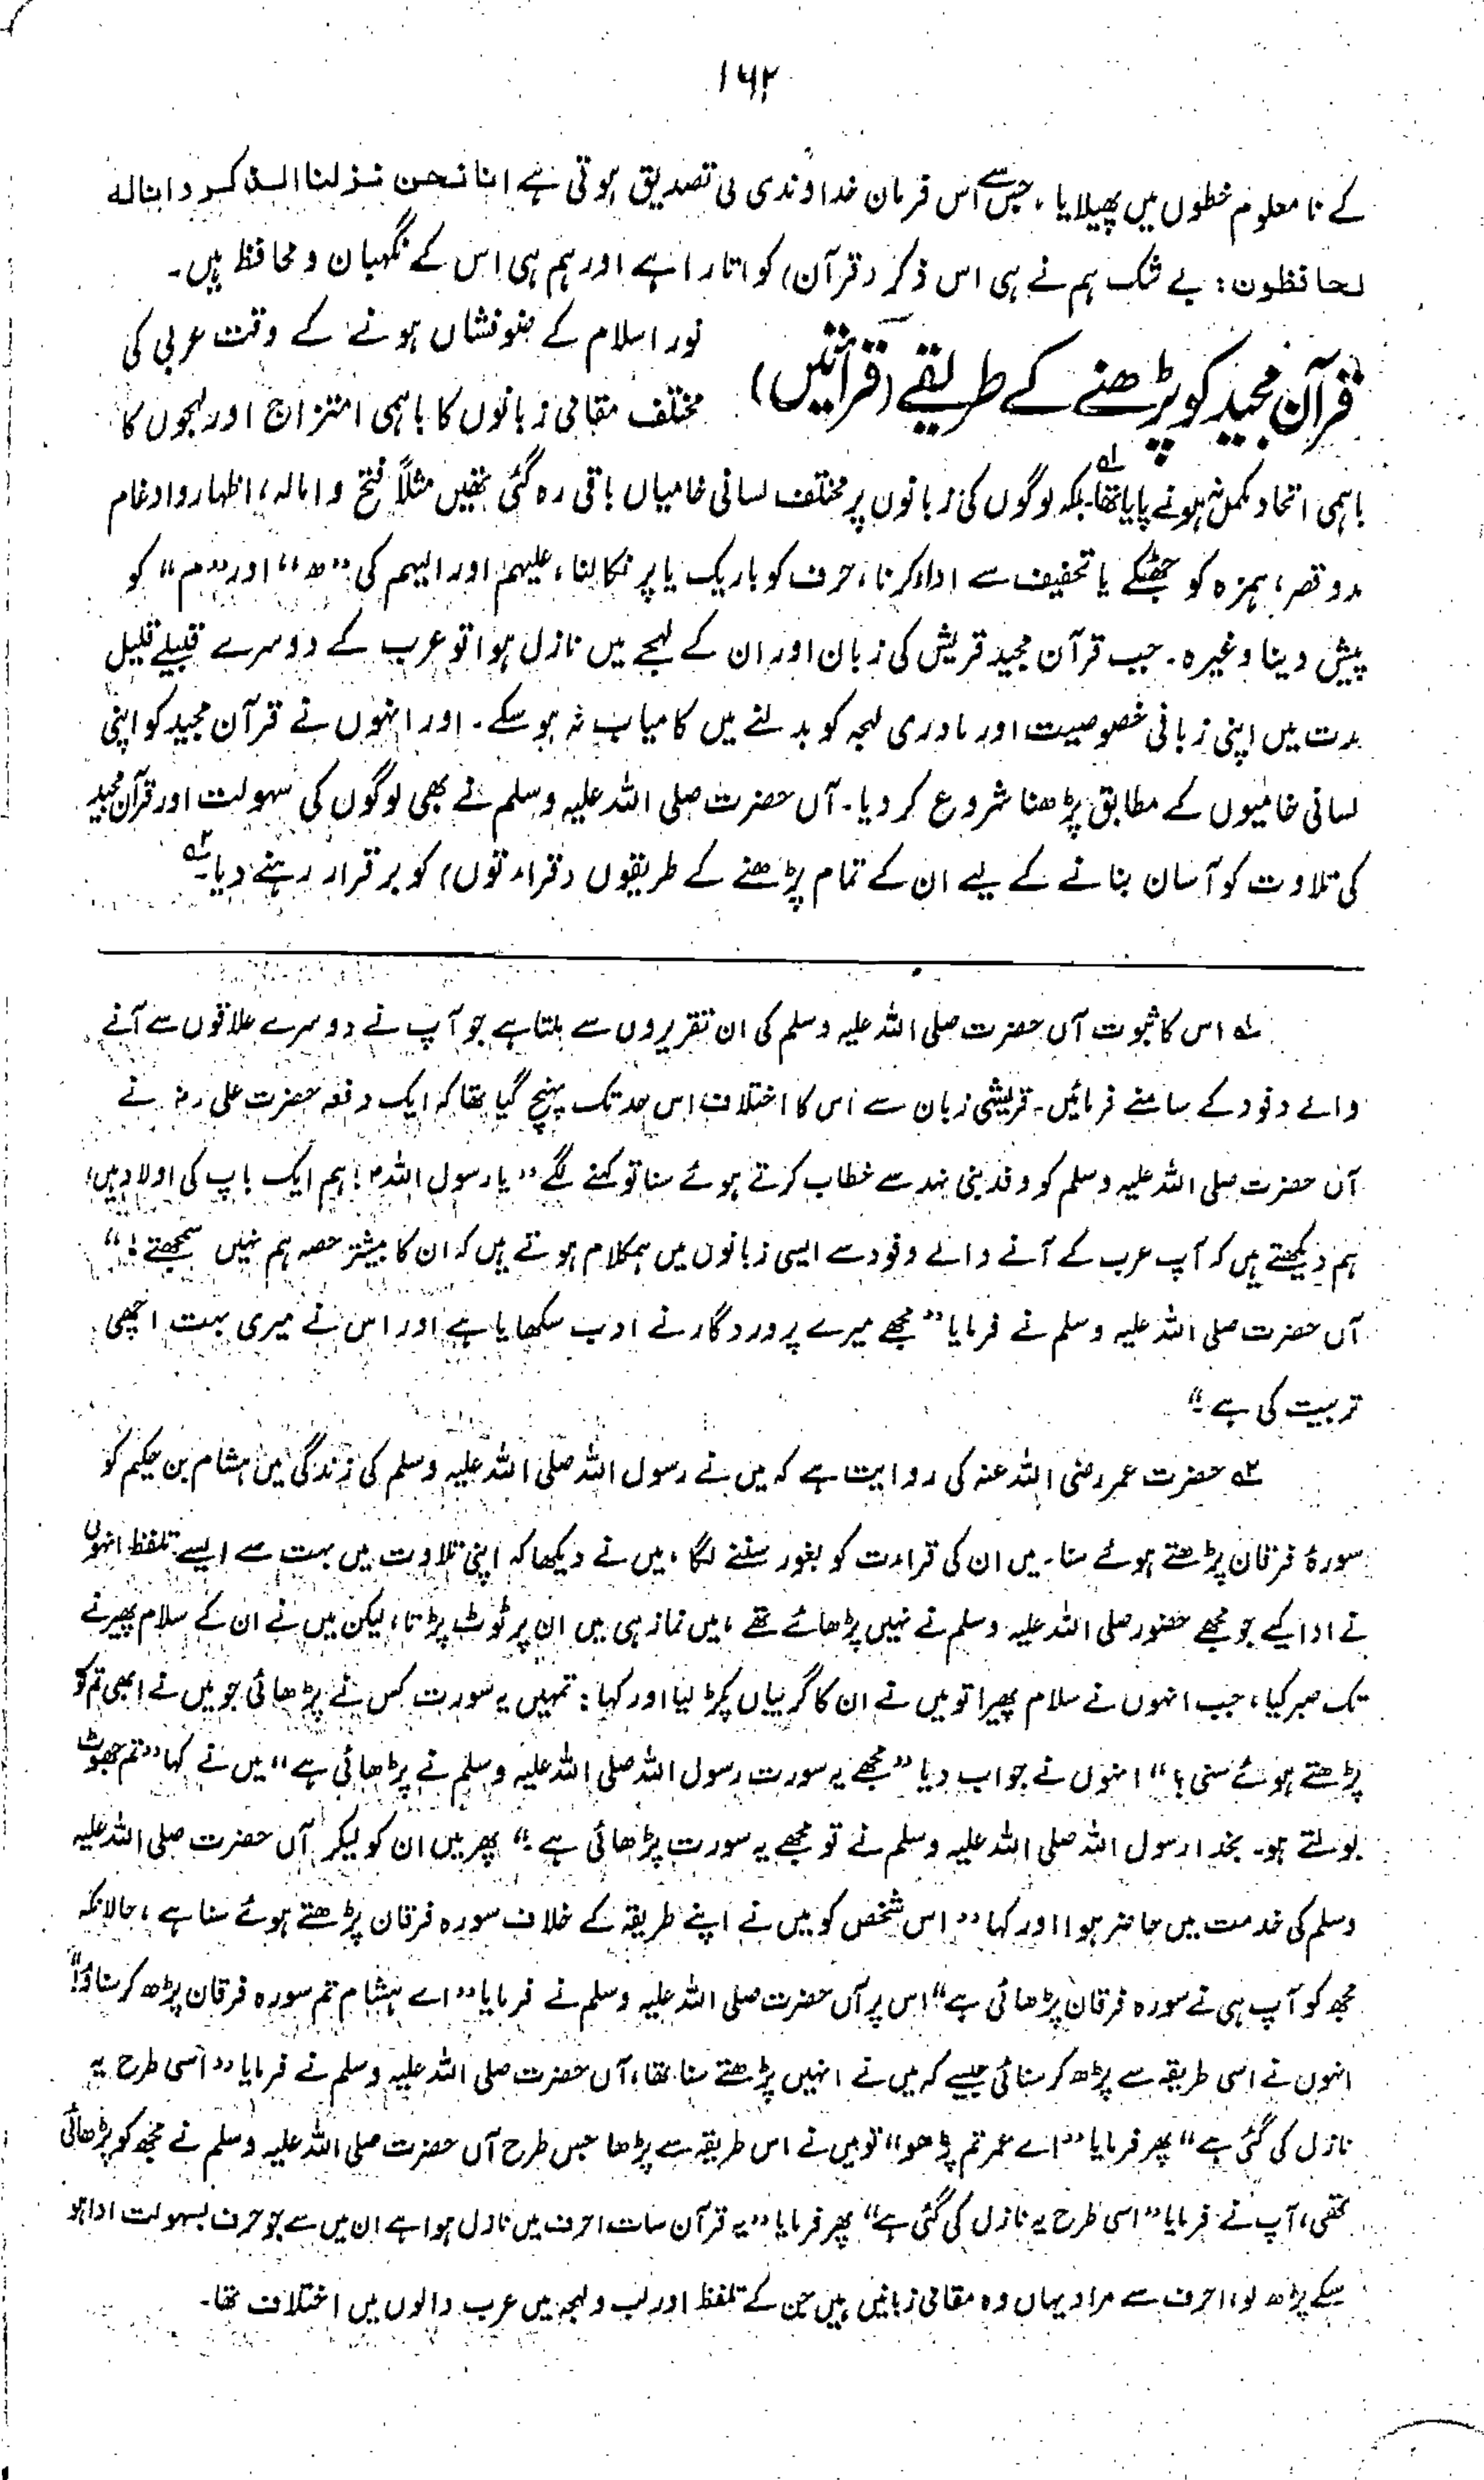 ۱۶۲
کے نا معلوم خطوں میں پھیلایا، جس سے اس فرمان خداوندی کی تصدیق ہوتی ہے انا نحن نزلنا الذکر و انا له
لحافظون: بے شک ہم نے ہی اس ذکر (قرآن) کو اتارا ہے اور ہم ہی اس کے نگہبان و محافظ ہیں۔
قرآن مجید کو پڑھنے کے طریقے (قرأتیں)
نور اسلام کے ضوفشاں ہونے کے وقت عربی کی
مختلف مقامی زبانوں کا باہمی امتزاج اور لہجوں کا
باہمی اتحاد مکمل نہ ہونے پایا تھا۔ ۱ بلکہ لوگوں کی زبانوں پر مختلف لسانی خامیاں باقی رہ گئی تھیں مثلاً فتح و امالہ، اظہار و ادغام
مد و قصر، ہمزہ کو جھٹکے یا تخفیف سے ادا کرنا، حرف کو باریک یا پر نکالنا، علیہم اور الیہم کی "ھ" اور "م" کو
پیش دینا وغیرہ۔ جب قرآن مجید قریش کی زبان اور ان کے لہجے میں نازل ہوا تو عرب کے دوسرے قبیلے قلیل
مدت میں اپنی زبانی خصوصیت اور مادری لہجہ کو بدلنے میں کامیاب نہ ہو سکے۔ اور انہوں نے قرآن مجید کو اپنی
لسانی خامیوں کے مطابق پڑھنا شروع کر دیا۔ آں حضرت صلی اللہ علیہ وسلم نے بھی لوگوں کی سہولت اور قرآن مجید
کی تلاوت کو آسان بنانے کے لیے ان کے تمام پڑھنے کے طریقوں (قراءتوں) کو برقرار رہنے دیا۔ ۲
۱ اس کا ثبوت آں حضرت صلی اللہ علیہ وسلم کی ان تقریروں سے ملتا ہے جو آپ نے دوسرے علاقوں سے آنے
والے وفود کے سامنے فرمائیں۔ قریشی زبان سے اس کا اختلاف اس حد تک پہنچ گیا تھا کہ ایک دفعہ حضرت علی رض نے
آں حضرت صلی اللہ علیہ وسلم کو وفد بنی نہد سے خطاب کرتے ہوئے سنا تو کہنے لگے "یا رسول اللہ! ہم ایک باپ کی اولاد ہیں،
ہم دیکھتے ہیں کہ آپ عرب کے آنے والے وفود سے ایسی زبانوں میں ہمکلام ہوتے ہیں کہ ان کا بیشتر حصہ ہم نہیں سمجھتے!"
آں حضرت صلی اللہ علیہ وسلم نے فرمایا "مجھے میرے پروردگار نے ادب سکھایا ہے اور اس نے میری بہت اچھی
تربیت کی ہے۔"
۲ حضرت عمر رضی اللہ عنہ کی روایت ہے کہ میں نے رسول اللہ صلی اللہ علیہ وسلم کی زندگی میں ہشام بن حکیم کو
سورۂ فرقان پڑھتے ہوئے سنا۔ میں ان کی قراءت کو بغور سننے لگا، میں نے دیکھا کہ اپنی تلاوت میں بہت سے ایسے تلفظ انہوں
نے ادا کیے جو مجھے حضور صلی اللہ علیہ وسلم نے نہیں پڑھائے تھے، میں نماز ہی میں ان پر ٹوٹ پڑتا، لیکن میں نے ان کے سلام پھیرنے
تک صبر کیا، جب انہوں نے سلام پھیرا تو میں نے ان کا گریباں پکڑ لیا اور کہا: تمہیں یہ سورت کس نے پڑھائی جو میں نے ابھی تم کو
پڑھتے ہوئے سنی؟" انہوں نے جواب دیا "مجھے یہ سورت رسول اللہ صلی اللہ علیہ وسلم نے پڑھائی ہے" میں نے کہا "تم جھوٹ
بولتے ہو۔ بخدا رسول اللہ صلی اللہ علیہ وسلم نے تو مجھے یہ سورت پڑھائی ہے۔" پھر میں ان کو لیکر آں حضرت صلی اللہ علیہ
وسلم کی خدمت میں حاضر ہوا اور کہا "اس شخص کو میں نے اپنے طریقہ کے خلاف سورہ فرقان پڑھتے ہوئے سنا ہے، حالانکہ
مجھ کو آپ ہی نے سورہ فرقان پڑھائی ہے" اس پر آں حضرت صلی اللہ علیہ وسلم نے فرمایا "اے ہشام تم سورہ فرقان پڑھ کر سناؤ!"
انہوں نے اسی طریقہ سے پڑھ کر سنائی جیسے کہ میں نے انہیں پڑھتے سنا تھا، آں حضرت صلی اللہ علیہ وسلم نے فرمایا "اسی طرح یہ
نازل کی گئی ہے" پھر فرمایا "اے عمر تم پڑھو" تو میں نے اس طریقہ سے پڑھا جس طرح آں حضرت صلی اللہ علیہ وسلم نے مجھ کو پڑھائی
تھی، آپ نے فرمایا "اسی طرح یہ نازل کی گئی ہے" پھر فرمایا "یہ قرآن سات احرف میں نازل ہوا ہے ان میں سے جو حرف بسہولت ادا ہو
سکے پڑھ لو، احرف سے مراد یہاں وہ مقامی زبانیں ہیں جن کے تلفظ اور لب و لہجہ میں عرب والوں میں اختلاف تھا۔